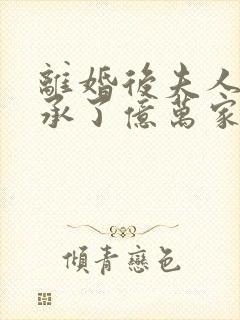 離婚後夫人
承了億萬家
傾青戀色